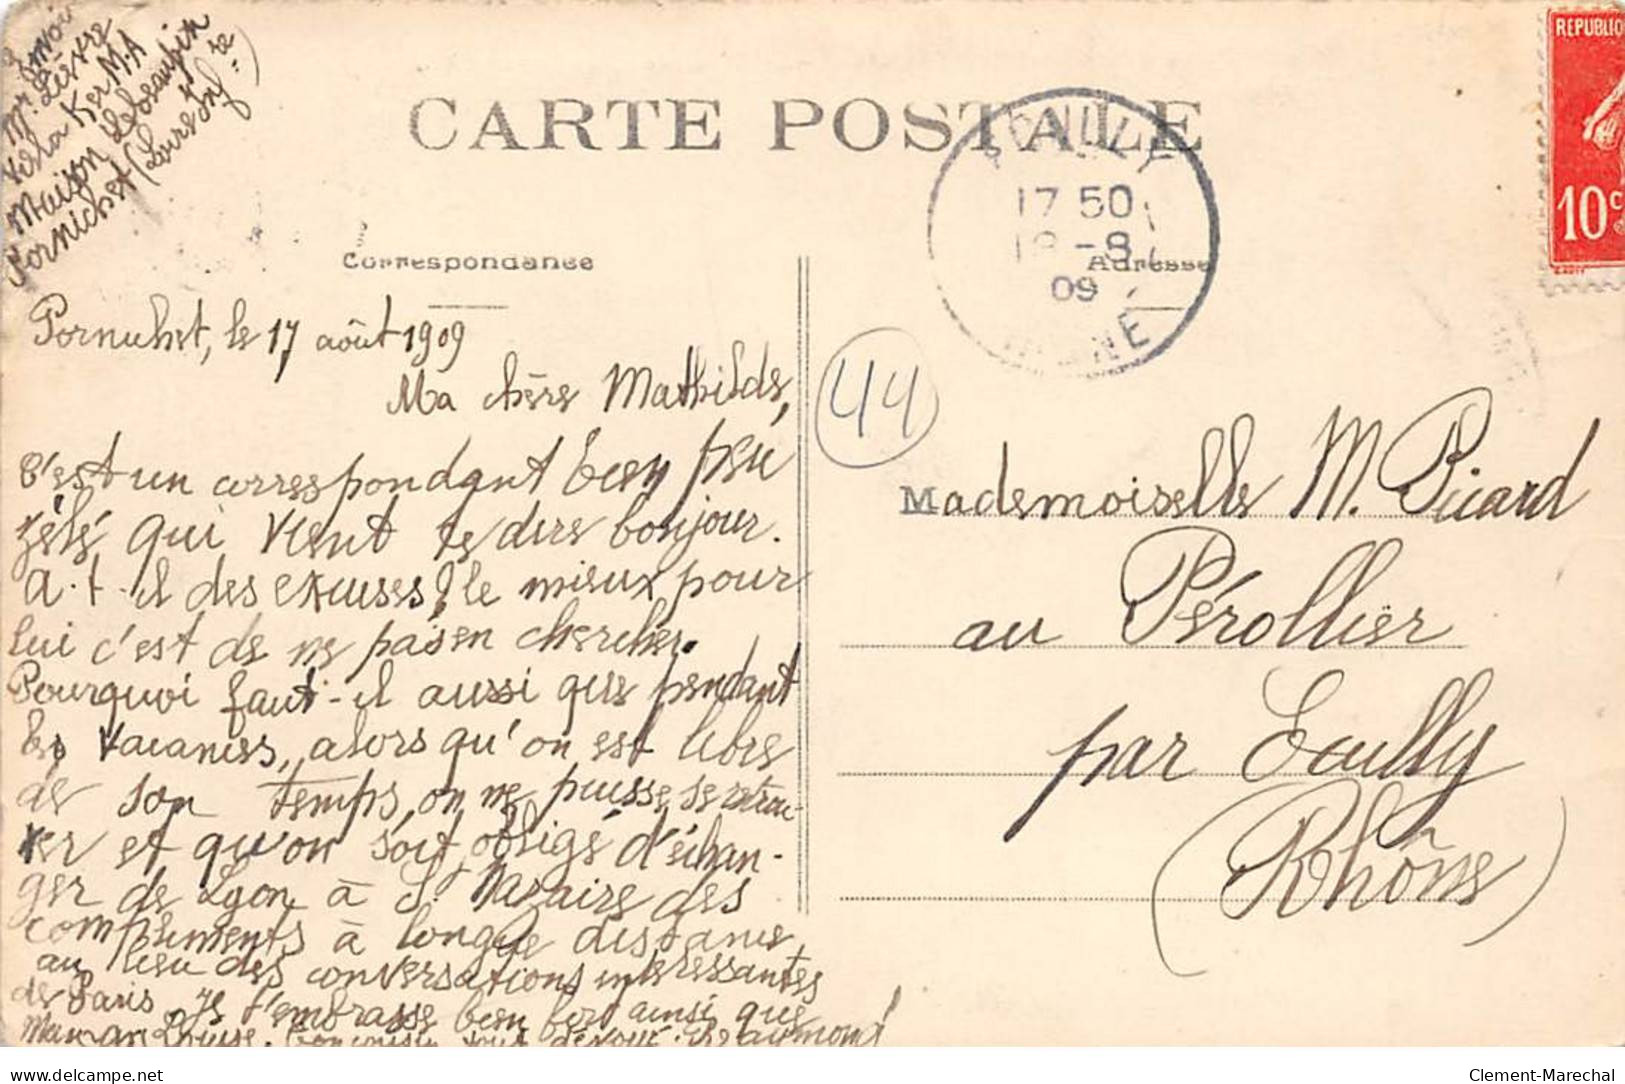 Envoi
Mr. Lièvre
Villa Ker M.A
Maison Lebeaupin
Pornichet (Loire Infre)
CARTE POSTALE
ECULLY
17 50
18 -8
09
RHONE
REPUBLIQ
10c
Correspondance
Adresse
Pornichet, le 17 août 1909
44
Ma chère Mathilde,
C'est un correspondant bien peu
zélé qui vient te dire bonjour.
A-t-il des excuses? le mieux pour
lui c'est de ne pas en chercher.
Pourquoi faut-il aussi que pendant
les vacances, alors qu'on est libre
de son temps, on ne puisse se retrou-
ver et qu'on soit obligé d'échan-
ger de Lyon à St Nazaire des
compliments à longue distance,
au lieu des conversations intéressantes
de Paris. Je t'embrasse bien fort ainsi que
Maman Louise. Ton cousin tout dévoué. Raymond
Mademoiselle M. Picard
au Pérollier
par Ecully
(Rhône)
Clement-Marechal